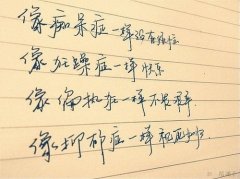 像痴呆症一样没有烦恼
像狂躁症一样快乐
像偏执狂一样不
像抑郁症一样视死如归